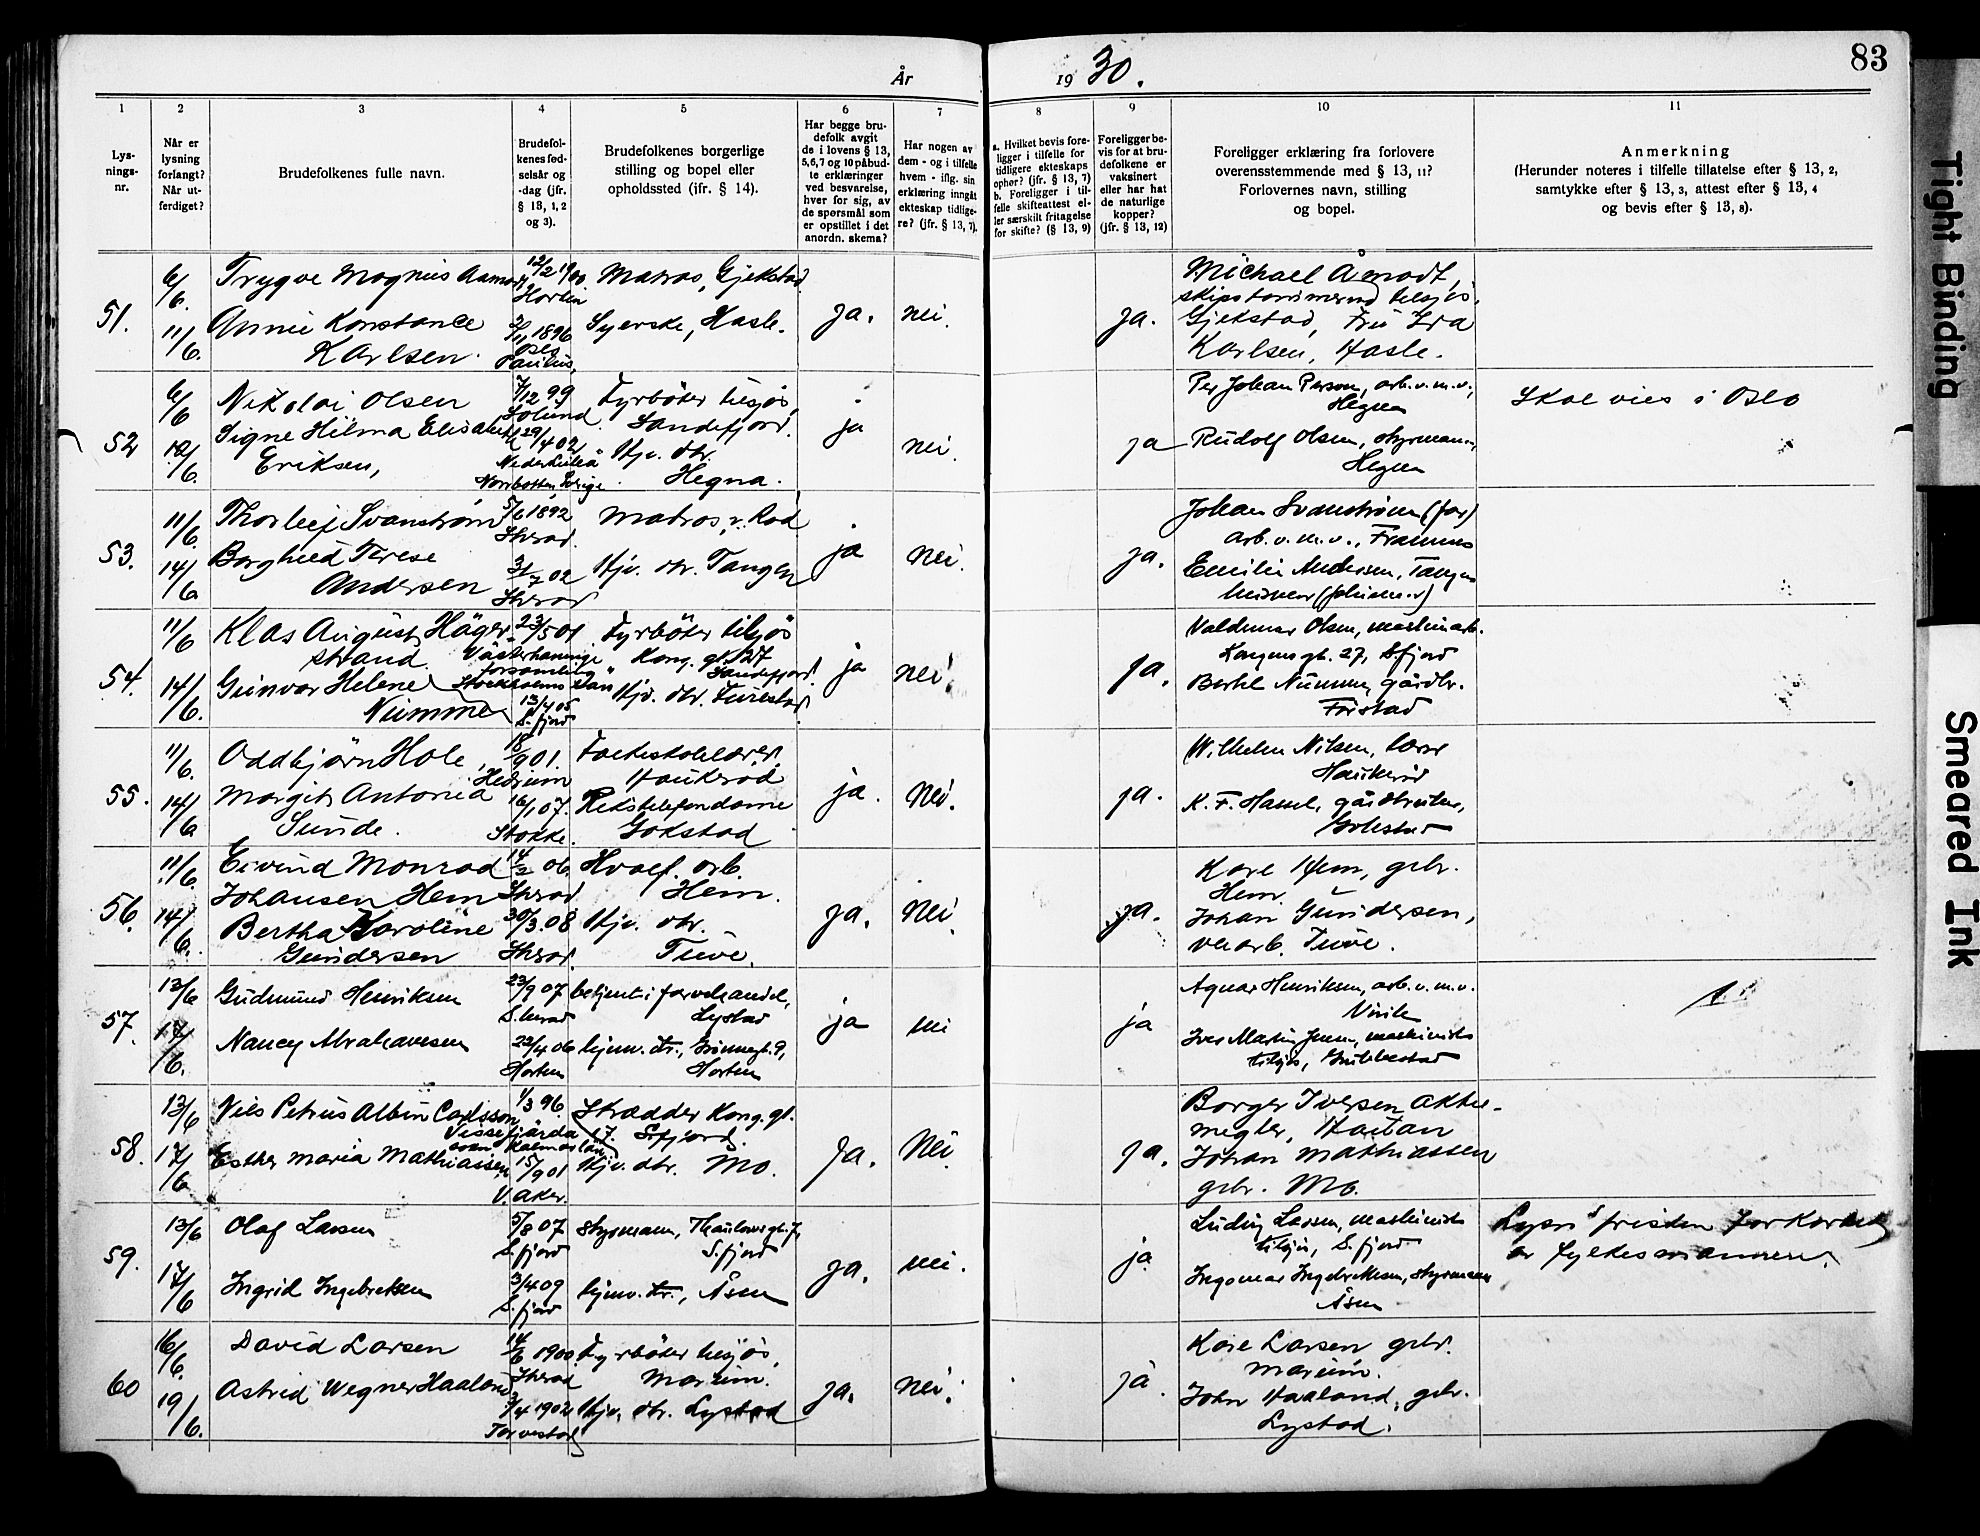 83
År 1930.
1 2 3 4 5 6 7 8 9 10 11
Lys-
nings-
nr.
Når er
lysning
forlangt?
Når ut-
ferdiget?
Brudefolkenes fulle navn.
Brudefol-
kenes fød-
selsår og
-dag (jfr.
§ 13, 1, 2
og 3).
Brudefolkenes borgerlige
stilling og bopel eller
opholdssted (ifr. § 14).
Har begge bru-
defolk avgit
de i lovens § 13,
5,6,7 og 10 påbud-
te erklæringer
ved besvarelse,
hver for sig, av
de spørsmål som
er opstillet i det
anordn. skema?
Har nogen av
dem - og i tilfelle
hvem - iflg. sin
erklæring inngått
ekteskap tidlige-
re? (jfr. § 13, 7).
a. Hvilket bevis fore-
ligger i tilfelle for
tidligere ekteskaps
ophør? (jfr. § 13, 7)
b. Foreligger i til-
felle skifteattest el-
ler særskilt fritagelse
for skifte? (§ 13, 9)
Foreligger be-
vis for at bru-
defolkene er
vaksinert
eller har hat
de naturlige
kopper?
(jfr. § 13, 12)
Foreligger erklæring fra forlovere
overensstemmende med § 13, 11?
Forlovernes navn, stilling
og bopel.
Anmerkning
(Herunder noteres i tilfelle tillatelse efter § 13, 2,
samtykke efter § 13, 3, attest efter § 13, 4
og bevis efter § 13, 8).
51.
6/6.
11/6.
Trygve Magnus
Annie Konstance
Karlsen.
12/2 1900.
Horten
2/11 1896
Oslo
Paulus,
Matros, Gjekstad.
Syerske, Hasle.
ja.
nei.
ja.
Michael Åmodt,
tilsjøs.
Gjekstad, Fru
Karlsen, Hasle.
52
6/6
12/6.
Nikolai Olsen
Signe Hilma Elisabeth
Eriksen,
7/12 99
Solund
29/4 02
Nederluleå
Norrbotten, Sverige
Fyrböter tilsjøs,
Sandefjord.
Hjv. dtr.
Hegna.
ja
nei.
ja
Per Johan Person, arb. v. m. v.,
Hegna
Rudolf Olsen, styrmann,
Hegna
Skal vies i Oslo
53.
11/6.
14/6
Thorleif Svanström
Borghild Terese
Andersen
5/6 1892
Sherad.
3/7 02
Sherad
Matros, v. Rød
Hjv. dtr. Tangen
ja
nei.
ja.
Johan Svanström (far)
arb. v. m. v., Framnes
Emilie Andersen, Tangen
54.
11/6
14/6.
Klas August Häger-
strand.
Gunvor Helene
Numme
23/5 01
Västerhaninge
forsamling
Stockholms län
13/4 05
S. fjord
Fyrböter tilsjøs
Kong. gt. 27
Sandefjord.
Hjv. dtr. Furestad
ja
nei.
ja.
Valdemar Olsen, maskinarb.
Kongensgt. 27, S.fjord
Bertel Numme, gårdbr.
Forstad
55.
11/6.
14/6
Oddbjørn Hole,
Margit Antonia
Sunde.
18/9 01.
Hedrum
16/1 07.
Stokke.
Folkeskolelærer.
Haukerød
Rikstelefondame
Gokstad
ja.
nei.
ja.
Wilhelm Nilsen, lærer
Haukerød
K. F. Hassel, gårdbruker,
Gokstad
56.
11/6.
14/6.
Eivind Monrad
Johansen Hem
Bertha Karoline
Gundersen
14/2 06.
Sherad.
30/3.08
Sherad.
Hvalf. arb.
Hem.
Hjv. dtr.
Tuve.
ja.
nei.
ja.
Kare Hem, gbr.
Hem.
Johan Gundersen,
Tuve.
57.
13/6
17/6.
Gudmund Henriksen
Nancy Abrahamsen
23/9 07
S. herad
22/4 06
Horten
betjent i farvehandel,
Lystad
hjmv. dtr., Grönnegt. 9,
Horten
ja
nei
ja
Agnar Henriksen, arb. v. m. v.
Virik
Iver Martin Jensen, maskinist
tilsjøs,
58.
13/6
17/6
Nils Petrus Albin Carlsson
Esther Maria Mathiassen
1/3 96.
Vissefjärda
Kalmar län
15/9 01
V. Aker.
Skrædder Kong. gt.
17. S.fjord.
Hjv. dtr. Mo.
ja.
Nei
ja.
Borger Iversen
Johan Mathiassen
gbr. Mo.
59.
13/6
17/6
Olaf Larsen
Ingrid Ingebretsen
5/8 07
S. fjord
3/4 09
S. fjord
styrmann, Thaulowsgt. 7,
S. fjord
hjmv. dtr., Åsen
ja.
nei.
ja
Ludvig Larsen, maskinist
tilsjøs, S. fjord
Ingomar Ingebretsen, styrmann
Åsen
Lysn. s fristen forkortet
av fylkesmannen.
60
16/6.
19/6.
David Larsen
Astrid Wegner Haaland
14/6 1900
Sherad
3/4 1902
Torvestad
Fyrböter tilsjøs,
Marum.
Hjv. dtr. Lystad
ja.
nei.
ja.
Kare Larsen gbr.
Marum.
John Haaland, gbr.
Lystad.
Tight Binding
Smeared Ink